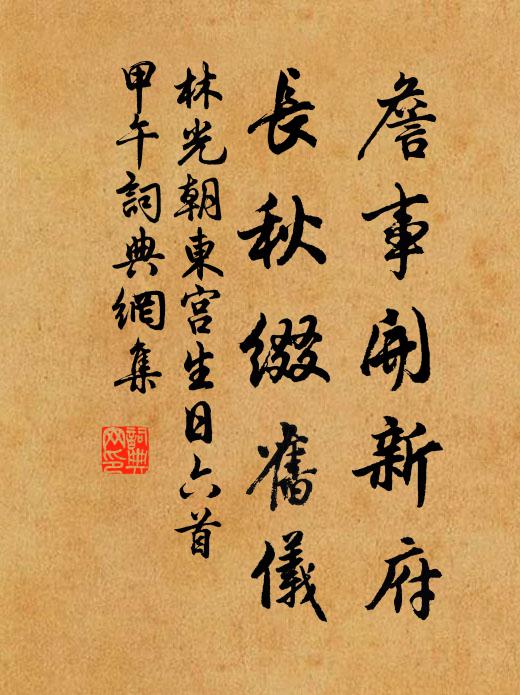 詹事開新府
長秋綴舊儀
林光朝東宮生日六首
甲午詞典網集
詞典網印